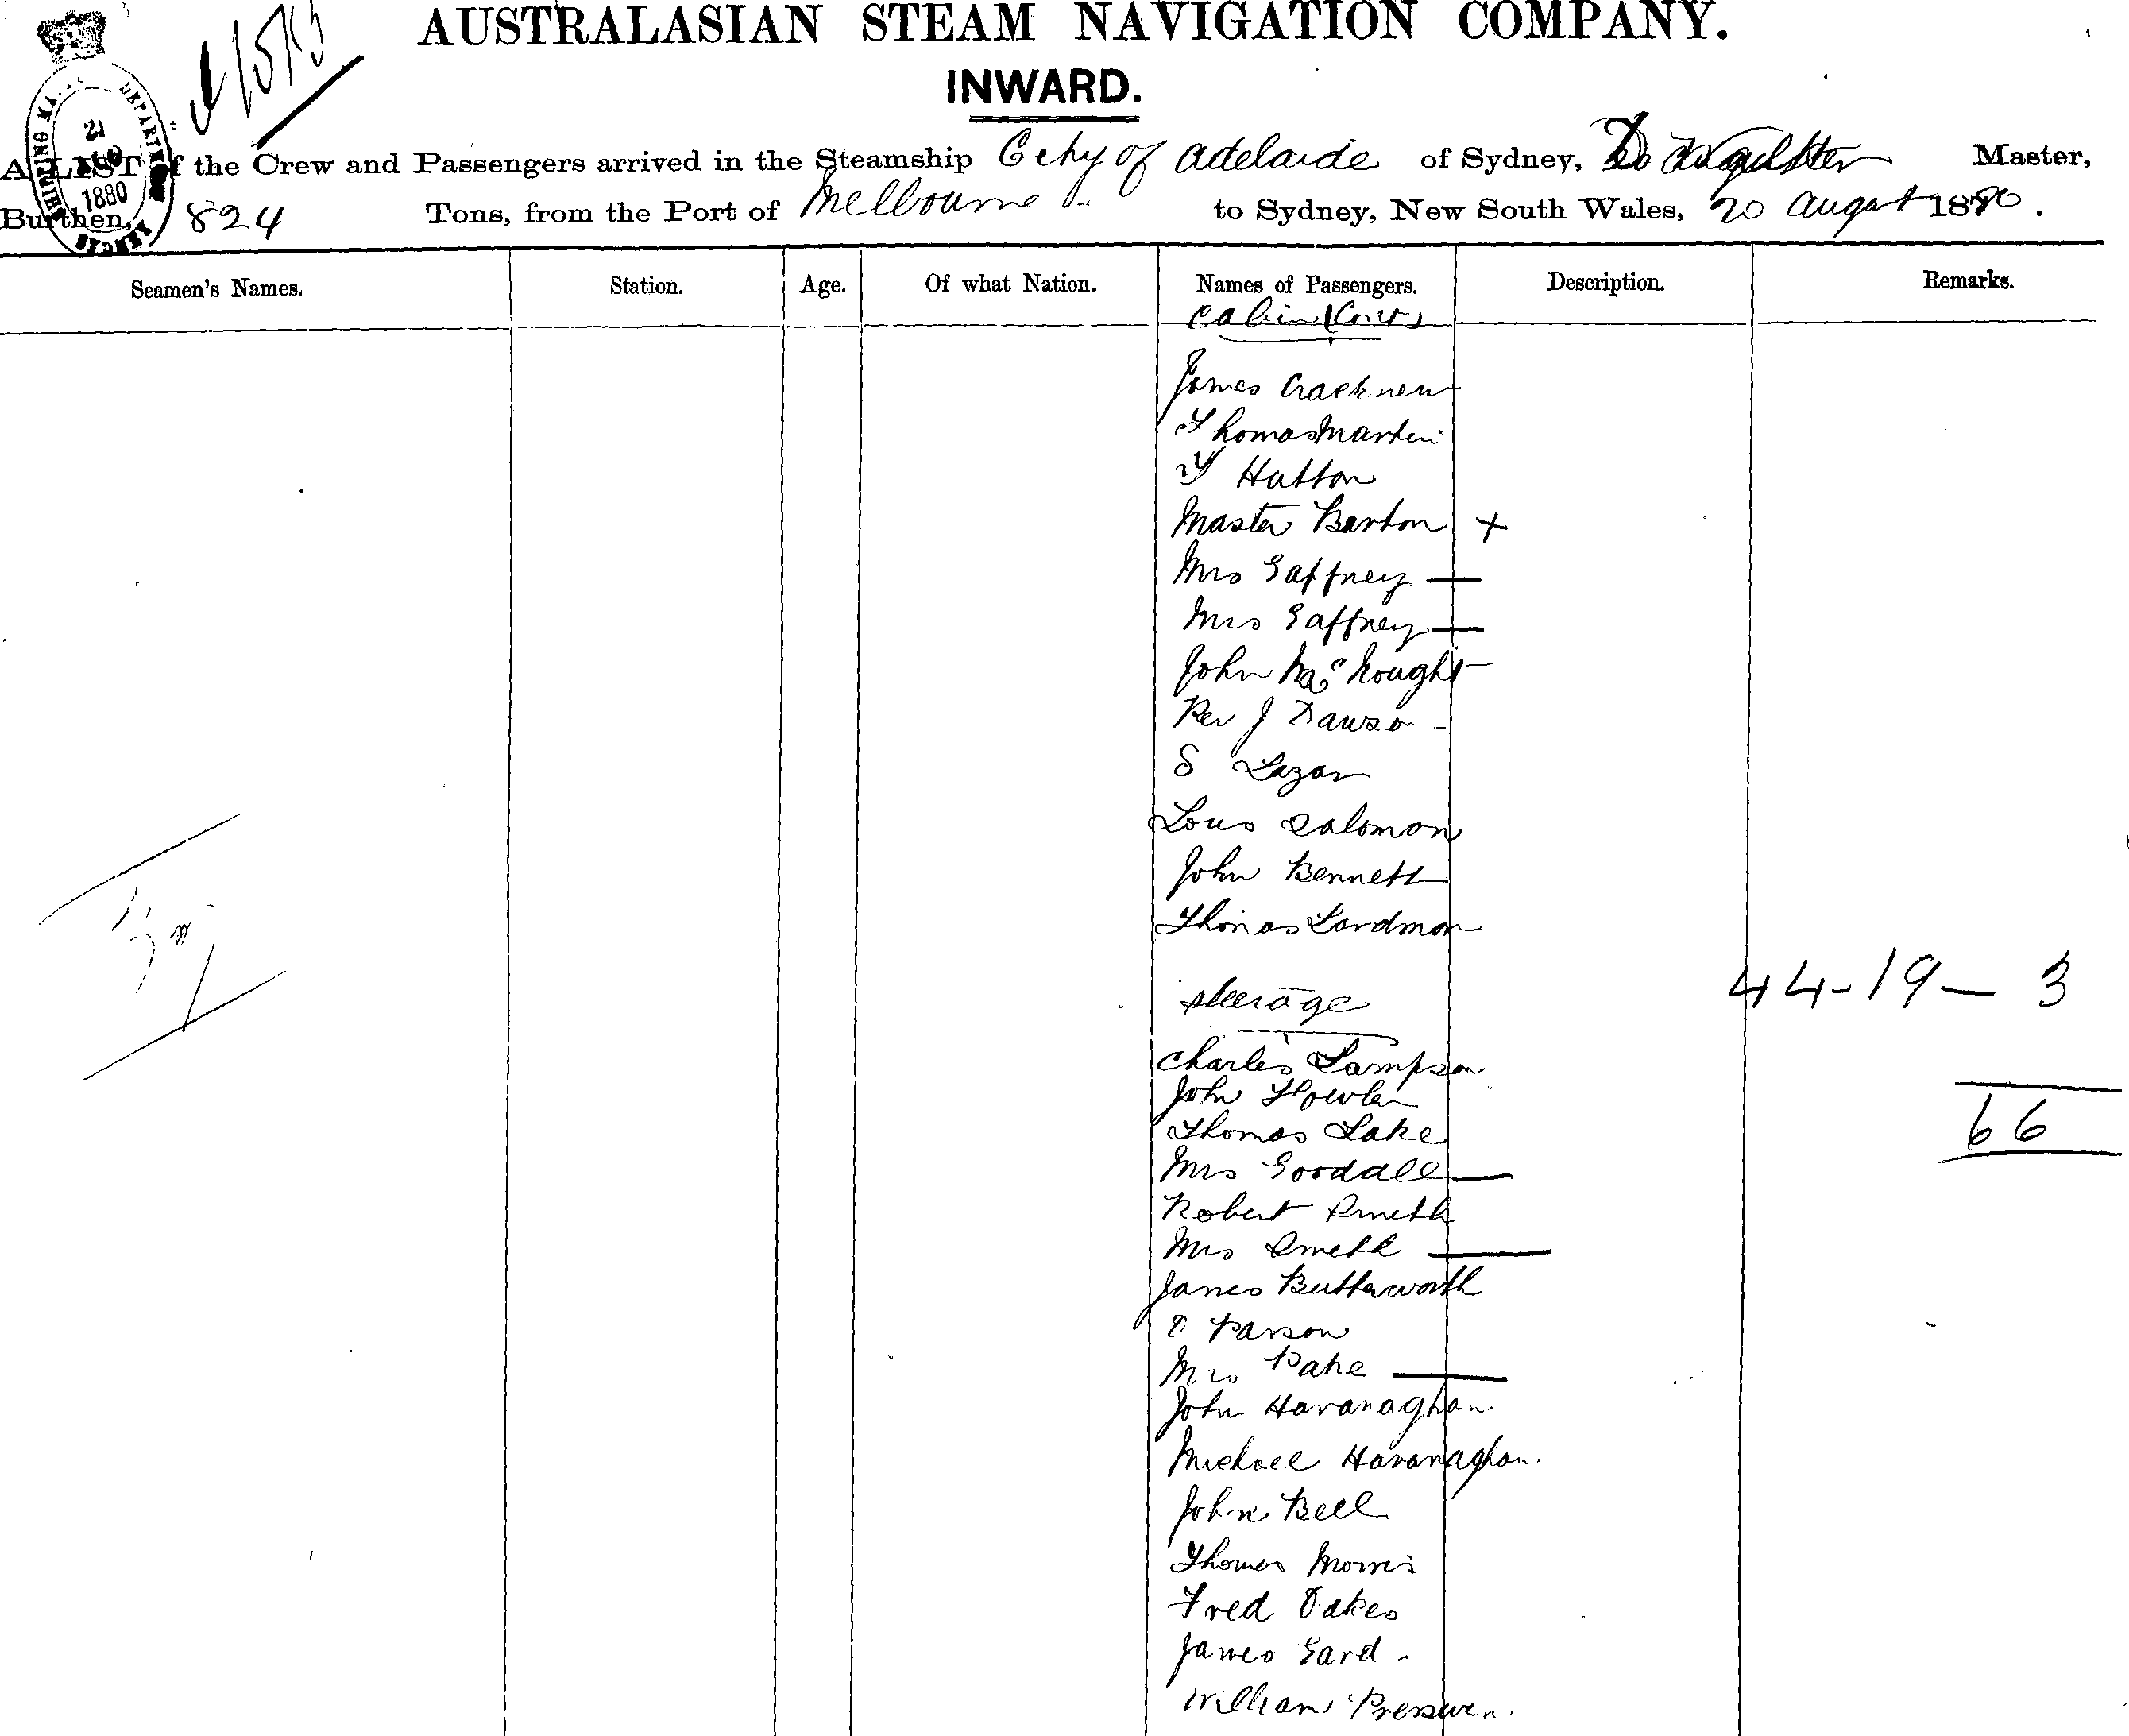 AUSTRALASIAN STEAM NAVIGATION COMPANY.
INWARD.
A LIST of the Crew and Passengers arrived in the Steamship City of Adelaide of Sydney, Master,
Burthen, 824 Tons, from the Port of Melbourne to Sydney, New South Wales, 20 August 1880.
SHIPPING DEPARTMENT
21
1880
SYDNEY
Seamen's Names. Station. Age. Of what Nation. Names of Passengers. Description. Remarks.
Cabin (Cont)
James Cracknell
Thomas Martin
T Hutton
Master Barton +
Mrs Gaffney —
Mrs Gaffney —
John McNought
Rev J Dawso
S Lazar
Louis Salomon
John Bennett
Thomas Lardmon
44-19-3
Steerage
Charles Lampson
John Fowler
66
Thomas Lake
Mrs Goodall —
Robert Smith
Mrs Smith —
James Butterworth
Parson
Mrs Pake —
John Havanaghan.
Michael Havanaghan.
John Bell
Thomas Morris
Fred Oakes
James Gard
William